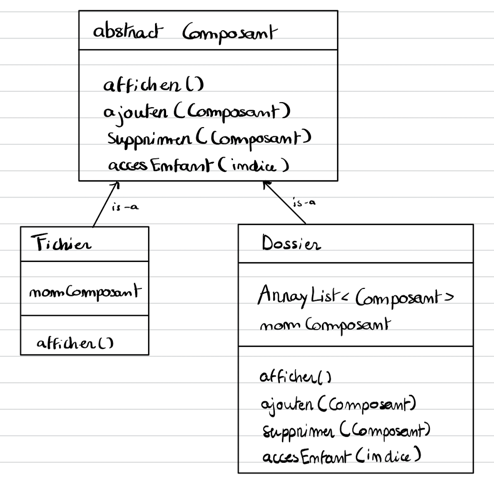 abstract Composant
afficher()
ajouter(Composant)
supprimer(Composant)
accesEnfant(indice)
is-a
is-a
Fichier
nomComposant
afficher()
Dossier
ArrayList<Composant>
nomComposant
afficher()
ajouter(Composant)
supprimer(Composant)
accesEnfant(indice)